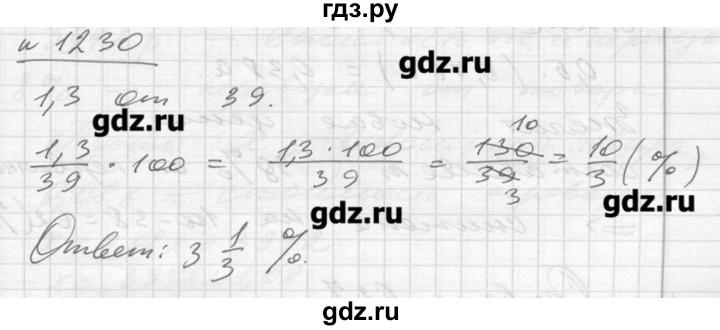 гдз.ру
№ 1230
gdz.ru
1,3 от 39.
gdz.ru
1,3/39 · 100 = 1,3 · 100/39 = 130/39 = 10/3 (%)
10
3
gdz.ru gdz.ru
Ответ: 3 1/3 %.
gdz.ru